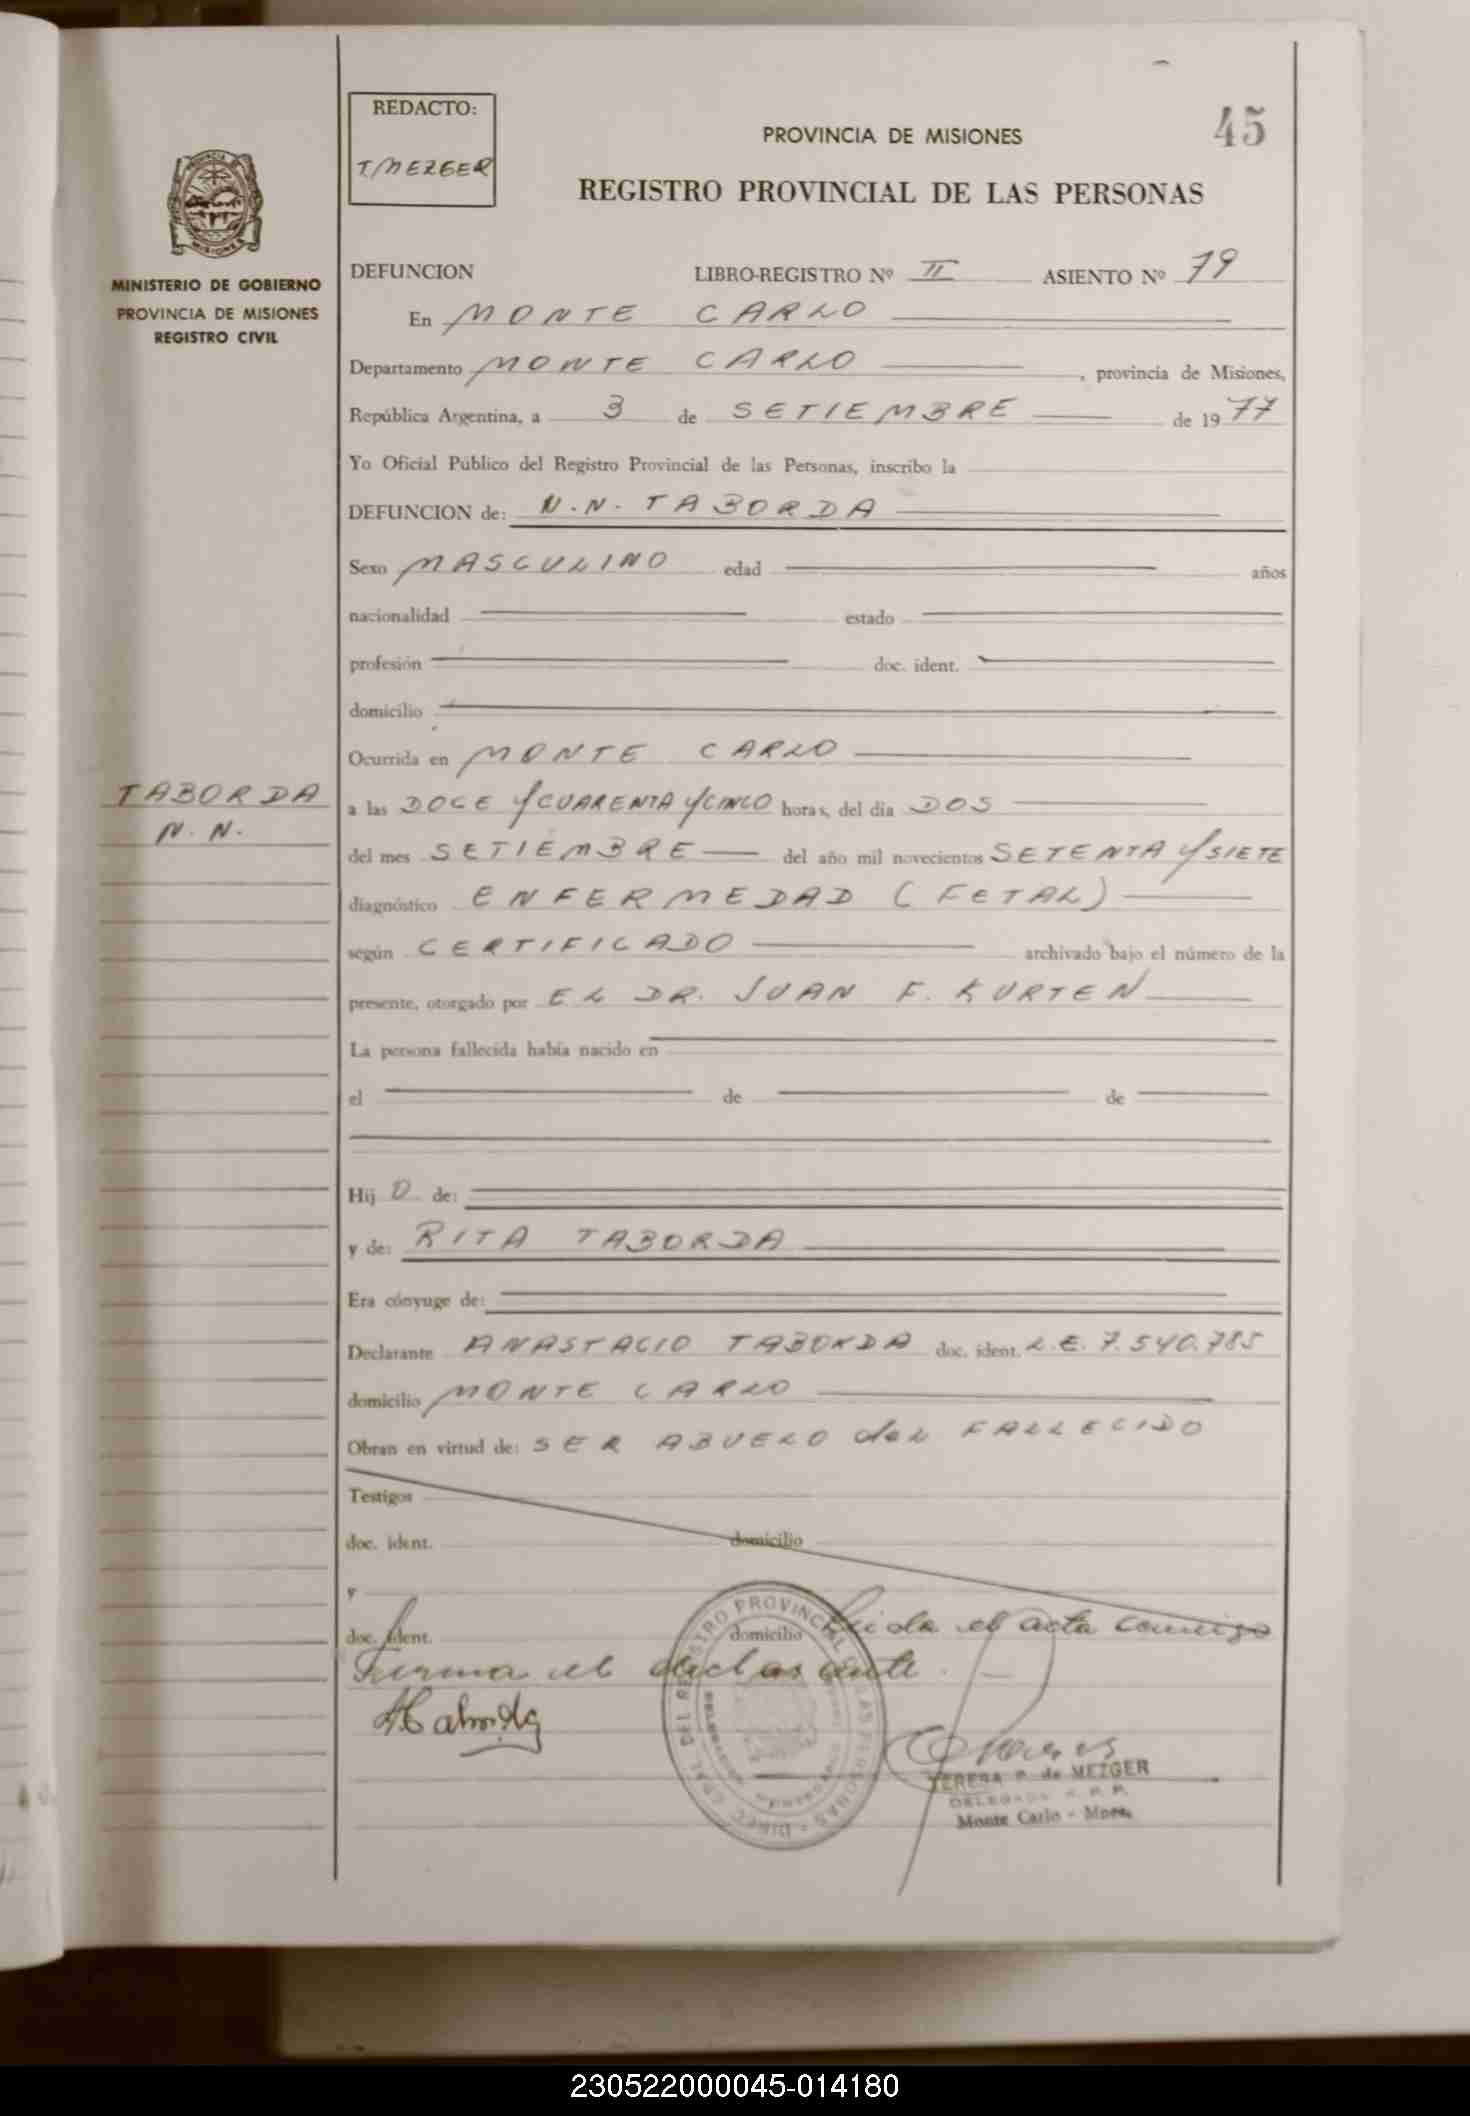 REDACTO:
T. MEZGER
45
PROVINCIA DE MISIONES
REGISTRO PROVINCIAL DE LAS PERSONAS
MINISTERIO DE GOBIERNO
PROVINCIA DE MISIONES
REGISTRO CIVIL
DEFUNCION LIBRO-REGISTRO Nº II ASIENTO Nº 79
En MONTE CARLO
Departamento MONTE CARLO, provincia de Misiones,
República Argentina, a 3 de SETIEMBRE de 1977
Yo Oficial Público del Registro Provincial de las Personas, inscribo la
DEFUNCION de: N.N. TABORDA
Sexo MASCULINO edad años
nacionalidad estado
profesión doc. ident.
domicilio
Ocurrida en MONTE CARLO
TABORDA
N.N.
a las DOCE Y CUARENTA Y CINCO horas, del día DOS
del mes SETIEMBRE del año mil novecientos SETENTA Y SIETE
diagnóstico ENFERMEDAD (FETAL)
según CERTIFICADO archivado bajo el número de la
presente, otorgado por EL DR. JUAN F. KURTEN
La persona fallecida había nacido en
el de de
Hij O de:
y de: RITA TABORDA
Era cónyuge de:
Declarante ANASTACIO TABORDA doc. ident. L.E. 7.540.785
domicilio MONTE CARLO
Obran en virtud de: SER ABUELO del FALLECIDO
Testigos
doc. ident. domicilio
y
doc. ident. domicilio Leida el acta conmigo
Firma el declarante.
ATaborda
TERESA P. de MEZGER
DELEGADA R. P. P.
Monte Carlo - Mnes.
230522000045-014180